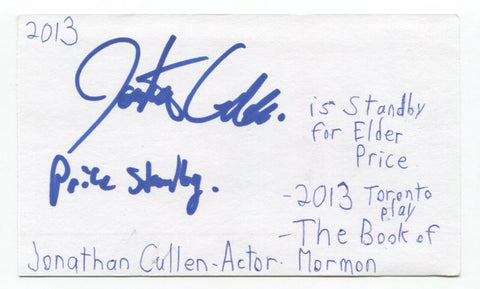 2013
Jonathan Cullen.
Price Standby.
is Standby
for Elder
Price
-2013 Toronto
play
-The Book of
Mormon
Jonathan Cullen-Actor.